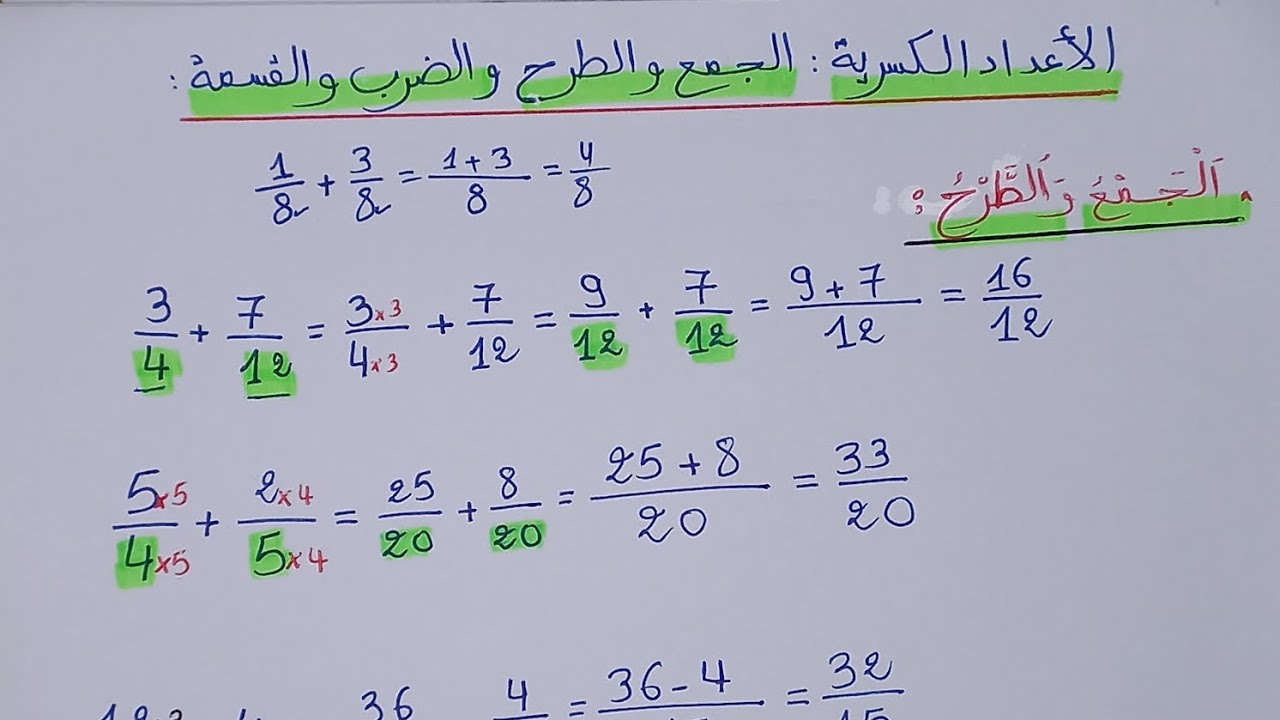 الأعداد الكسرية : الجمع والطرح والضرب والقسمة :
. اَلْجَمْعُ وَاَلطَّرْحُ :
1/8 + 3/8 = (1+3)/8 = 4/8
3/4 + 7/12 = (3×3)/(4×3) + 7/12 = 9/12 + 7/12 = (9+7)/12 = 16/12
(5×5)/(4×5) + (2×4)/(5×4) = 25/20 + 8/20 = (25+8)/20 = 33/20
36 4 = 36-4 = 32